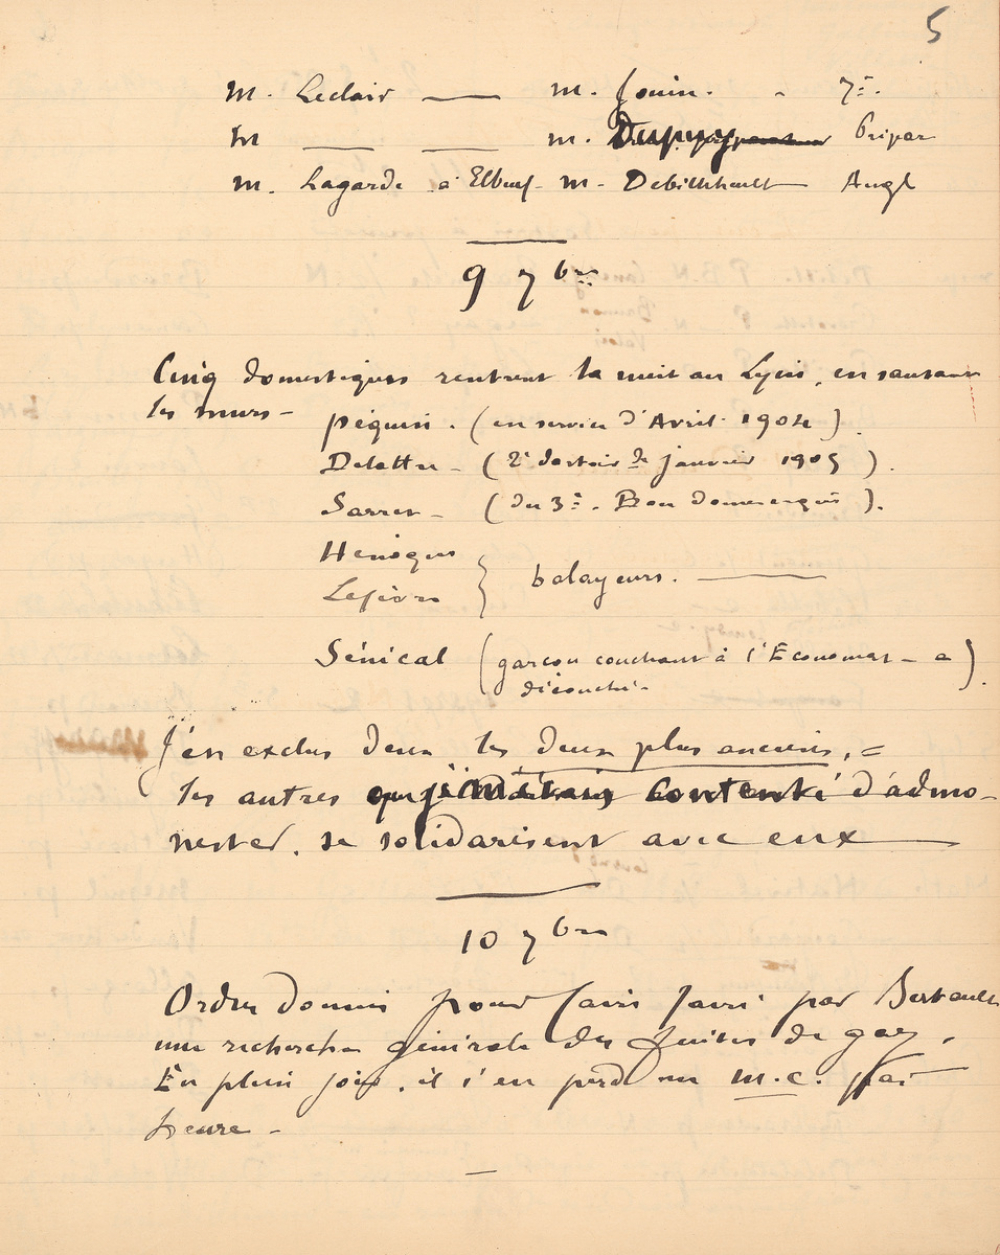 5
M. Leclair — M. Jouin. - 7e.
M — — M. Dupuy Prépar
M. Lagarde à Elbeuf - M - Debillehault — Angl
9 7bre
Cinq domestiques rentrent la nuit au Lycée, en sautant
les murs -
Péguin. (en service d'Avril 1904).
Delattre - (2e dortoir de janvier 1905).
Sarrer - (du 3e.
Hénoque
Lefèvre } balayeurs. —
Sénécal (garçon couchant à l'Economat - a
découché -).
J'en exclus deux les deux plus anciens, =
les autres que je m'étais contenté d'admo-
nester, se solidarisent avec eux —
10 7bre
Ordre donné pour faire faire par Bertault
une recherche générale des fuites de gaz.
En plein jour, il s'en perd un m.c. par
heure -